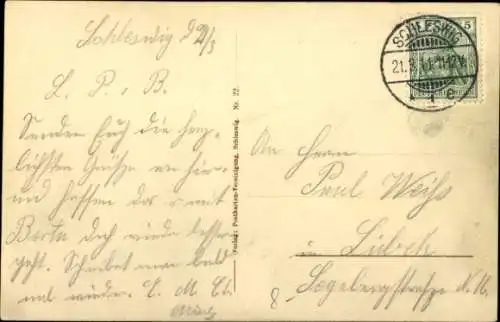 Schleswig d 21/3
L. P. u. B.
Senden Euch die herz-
lichsten Grüße von hier
und hoffen das es mit
Berta doch wieder besser
geht. Schreibet man bald
mal wieder. E. M. Cl.
Verlag: Postkarten-Vereinigung, Schleswig. Nr. 22.
5
SCHLESWIG
21.3.11.11-12 V.
* 1 c
An Herrn
Paul Weiss
in Lübeck
Segebergstraße
8